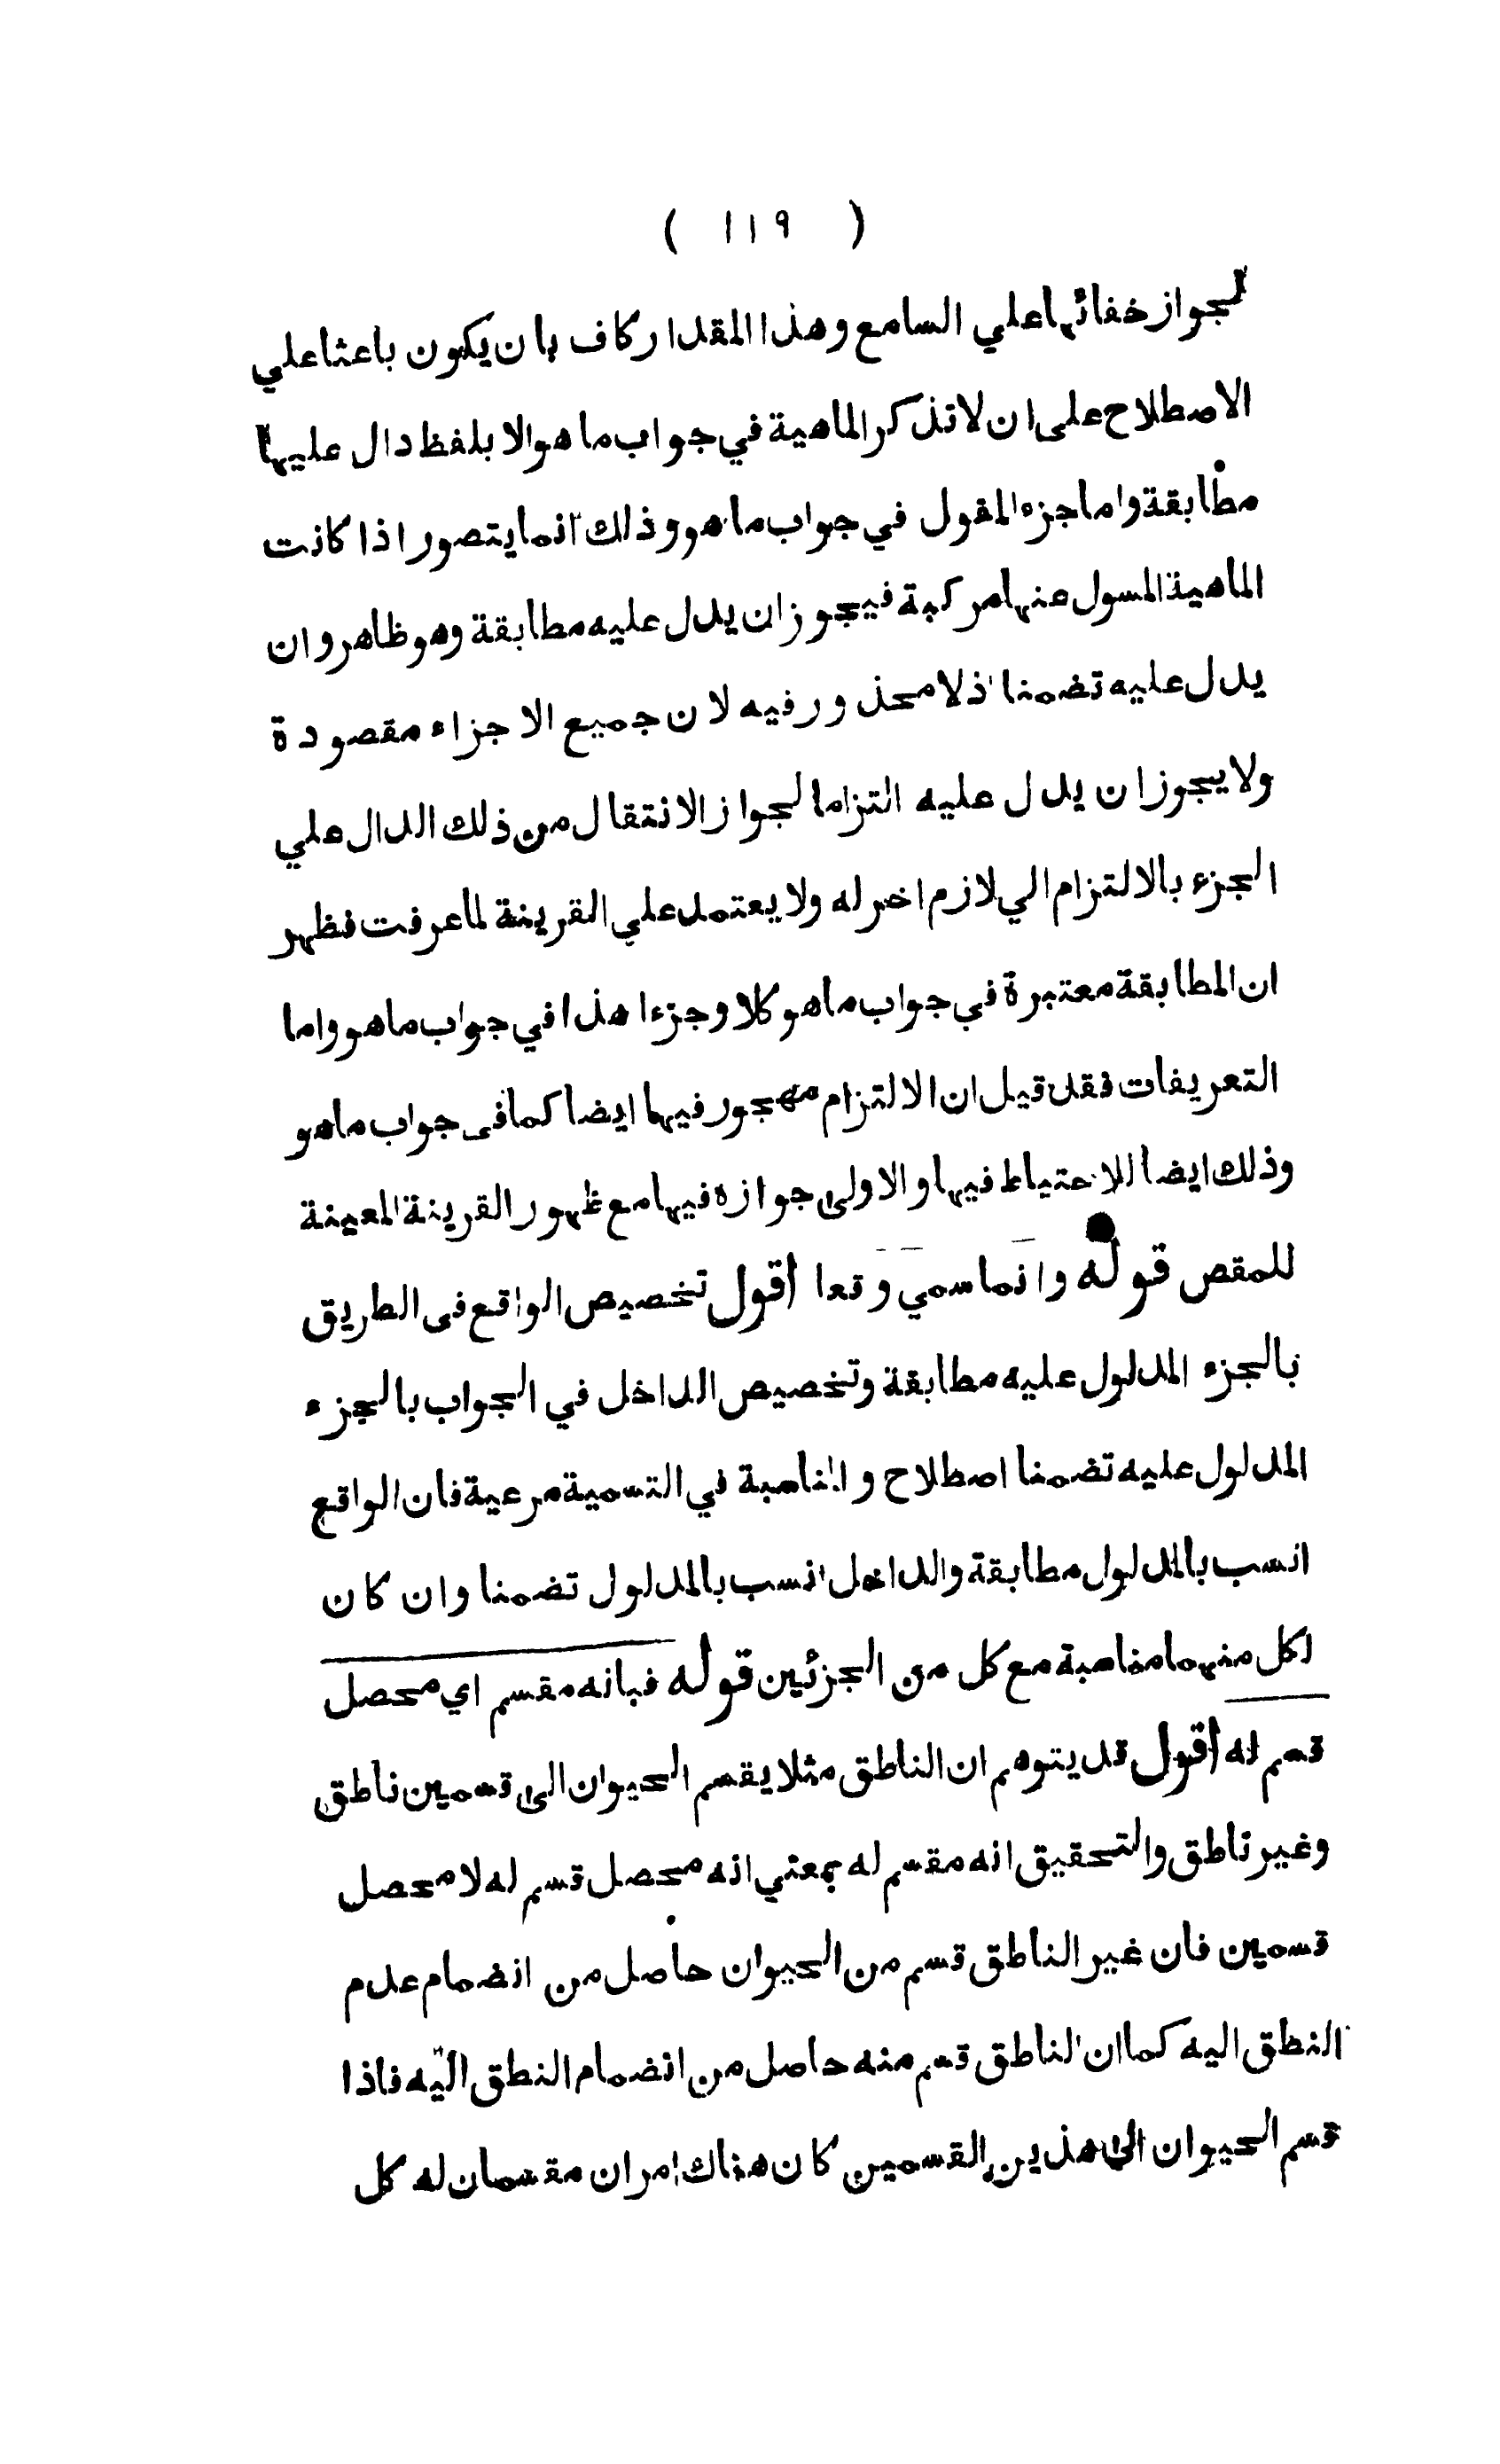 ( ١١٩ )
لجواز خفائها علي السامع وهذا المقدار كاف بان يكون باعثا علي
الاصطلاح على ان لا تذكر الماهية في جواب ما هو الا بلفظ دال عليها
مطابقة واما جزء المقول في جواب ما هو وذلك انما يتصور اذا كانت
الماهية المسول عنها مركبة فيجوز ان يدل عليه مطابقة وهو ظاهر وان
يدل عليه تضمنا اذ لا محذور فيه لان جميع الاجزاء مقصودة
ولا يجوز ان يدل عليه التزاما لجواز الانتقال من ذلك الدال علي
الجزء بالالتزام الي لازم اخر له ولا يعتمد علي القرينة لما عرفت فظهر
ان المطابقة معتبرة في جواب ما هو كلا وجزءا هذا في جواب ما هو واما
التعريفات فقد قيل ان الالتزام مهجور فيها ايضا كما في جواب ما هو
وذلك ايضا للاحتياط فيها والاولى جوازه فيها مع ظهور القرينة المعينة
للمقص قوله وانما سمي وقعا اقول تخصيص الواقع فى الطريق
بالجزء المدلول عليه مطابقة وتخصيص الداخل في الجواب بالجزء
المدلول عليه تضمنا اصطلاح والمناسبة في التسمية مرعية فان الواقع
انسب بالمدلول مطابقة والداخل انسب بالمدلول تضمنا وان كان
لكل منهما مناسبة مع كل من الجزئين قوله فبانه مقسم اي محصل
قسم له اقول قد يتوهم ان الناطق مثلا يقسم الحيوان الى قسمين ناطق
وغير ناطق والتحقيق انه مقسم له بمعني انه محصل قسم له لا محصل
قسمين فان غير الناطق قسم من الحيوان حاصل من انضمام عدم
النطق اليه كما ان الناطق قسم منه حاصل من انضمام النطق اليه فاذا
قسم الحيوان الى هذين القسمين كان هناك امران مقسمان له كل